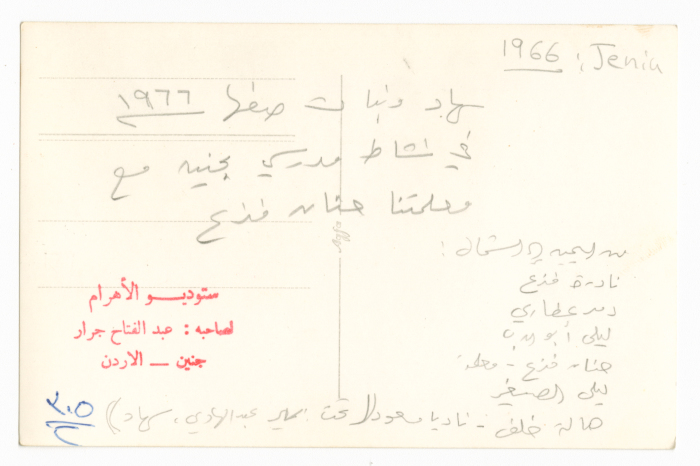 1966 : Jenin
سهاد وبنات صفها ١٩٦٦
في نشاط مدرسي بجنين مع
معلمتنا حنان فزع
من اليمين الى الشمال :
نادرة فزع
عطاري
ليلى أبو
حنان فزع - معلمة
ليلى الصغير
هالة خلف - ناديا سعود (تحت عبد الهادي، سهاد)
ستوديو الأهرام
لصاحبه : عبد الفتاح جرار
جنين — الاردن